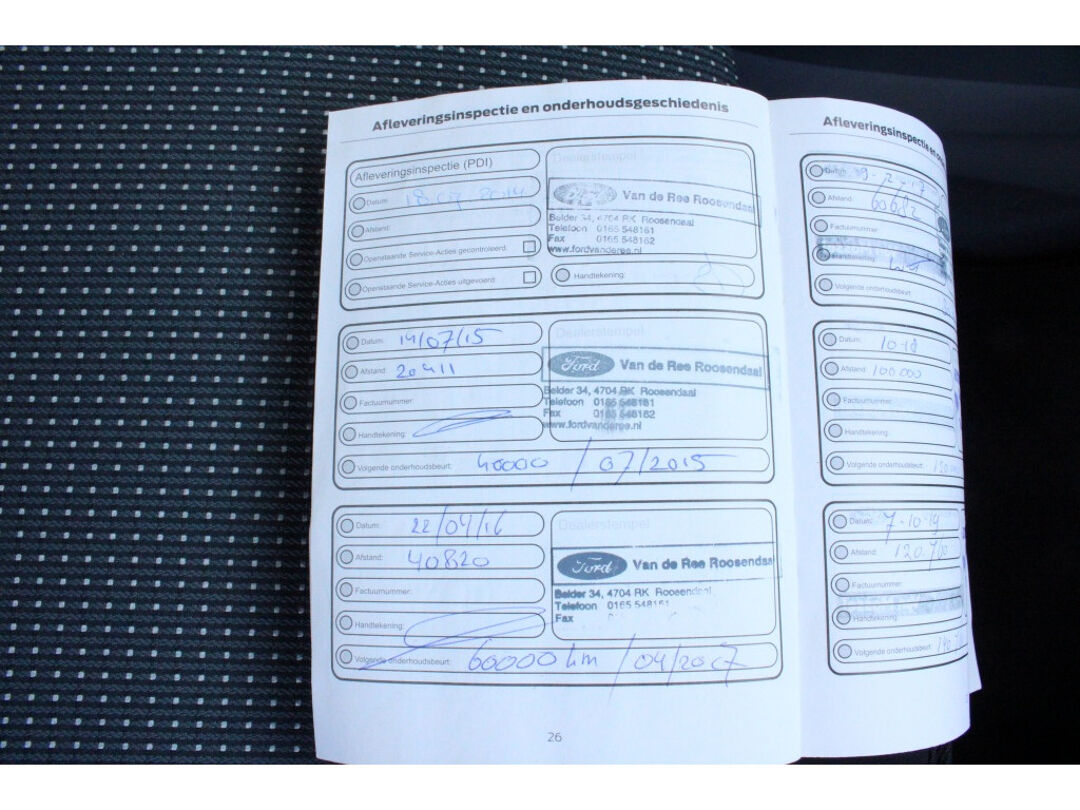 Afleveringsinspectie en onderhoudsgeschiedenis
Afleveringsinspectie (PDI)
Datum: 18.07.2014
Afstand:
Openstaande Service-Acties gecontroleerd:
Openstaande Service-Acties uitgevoerd:
Dealerstempel
Van de Ree Roosendaal
Belder 34, 4704 RK Roosendaal
Telefoon 0165 548161
Fax 0165 548162
www.fordvanderee.nl
Handtekening:
Datum: 14/07/15
Afstand: 20411
Factuurnummer:
Handtekening:
Dealerstempel
Ford Van de Ree Roosendaal
Belder 34, 4704 RK Roosendaal
Telefoon 0165 548161
Fax 0165 548162
www.fordvanderee.nl
Volgende onderhoudsbeurt: 40000 / 07/2015
Datum: 22/04/16
Afstand: 40820
Factuurnummer:
Handtekening:
Dealerstempel
Ford Van de Ree Roosendaal
Belder 34, 4704 RK Roosendaal
Telefoon 0165 548161
Fax
Volgende onderhoudsbeurt: 60000 km / 04/2017
26
Afleveringsinspectie en
Datum: 9-2-17
Afstand: 60682
Factuurnummer
Handtekening:
Volgende onderhoudsbeurt:
Datum: 10-18
Afstand: 100.000
Factuurnummer:
Handtekening:
Volgende onderhoudsbeurt:
Datum: 7-10-19
Afstand: 120.700
Factuurnummer:
Handtekening:
Volgende onderhoudsbeurt: